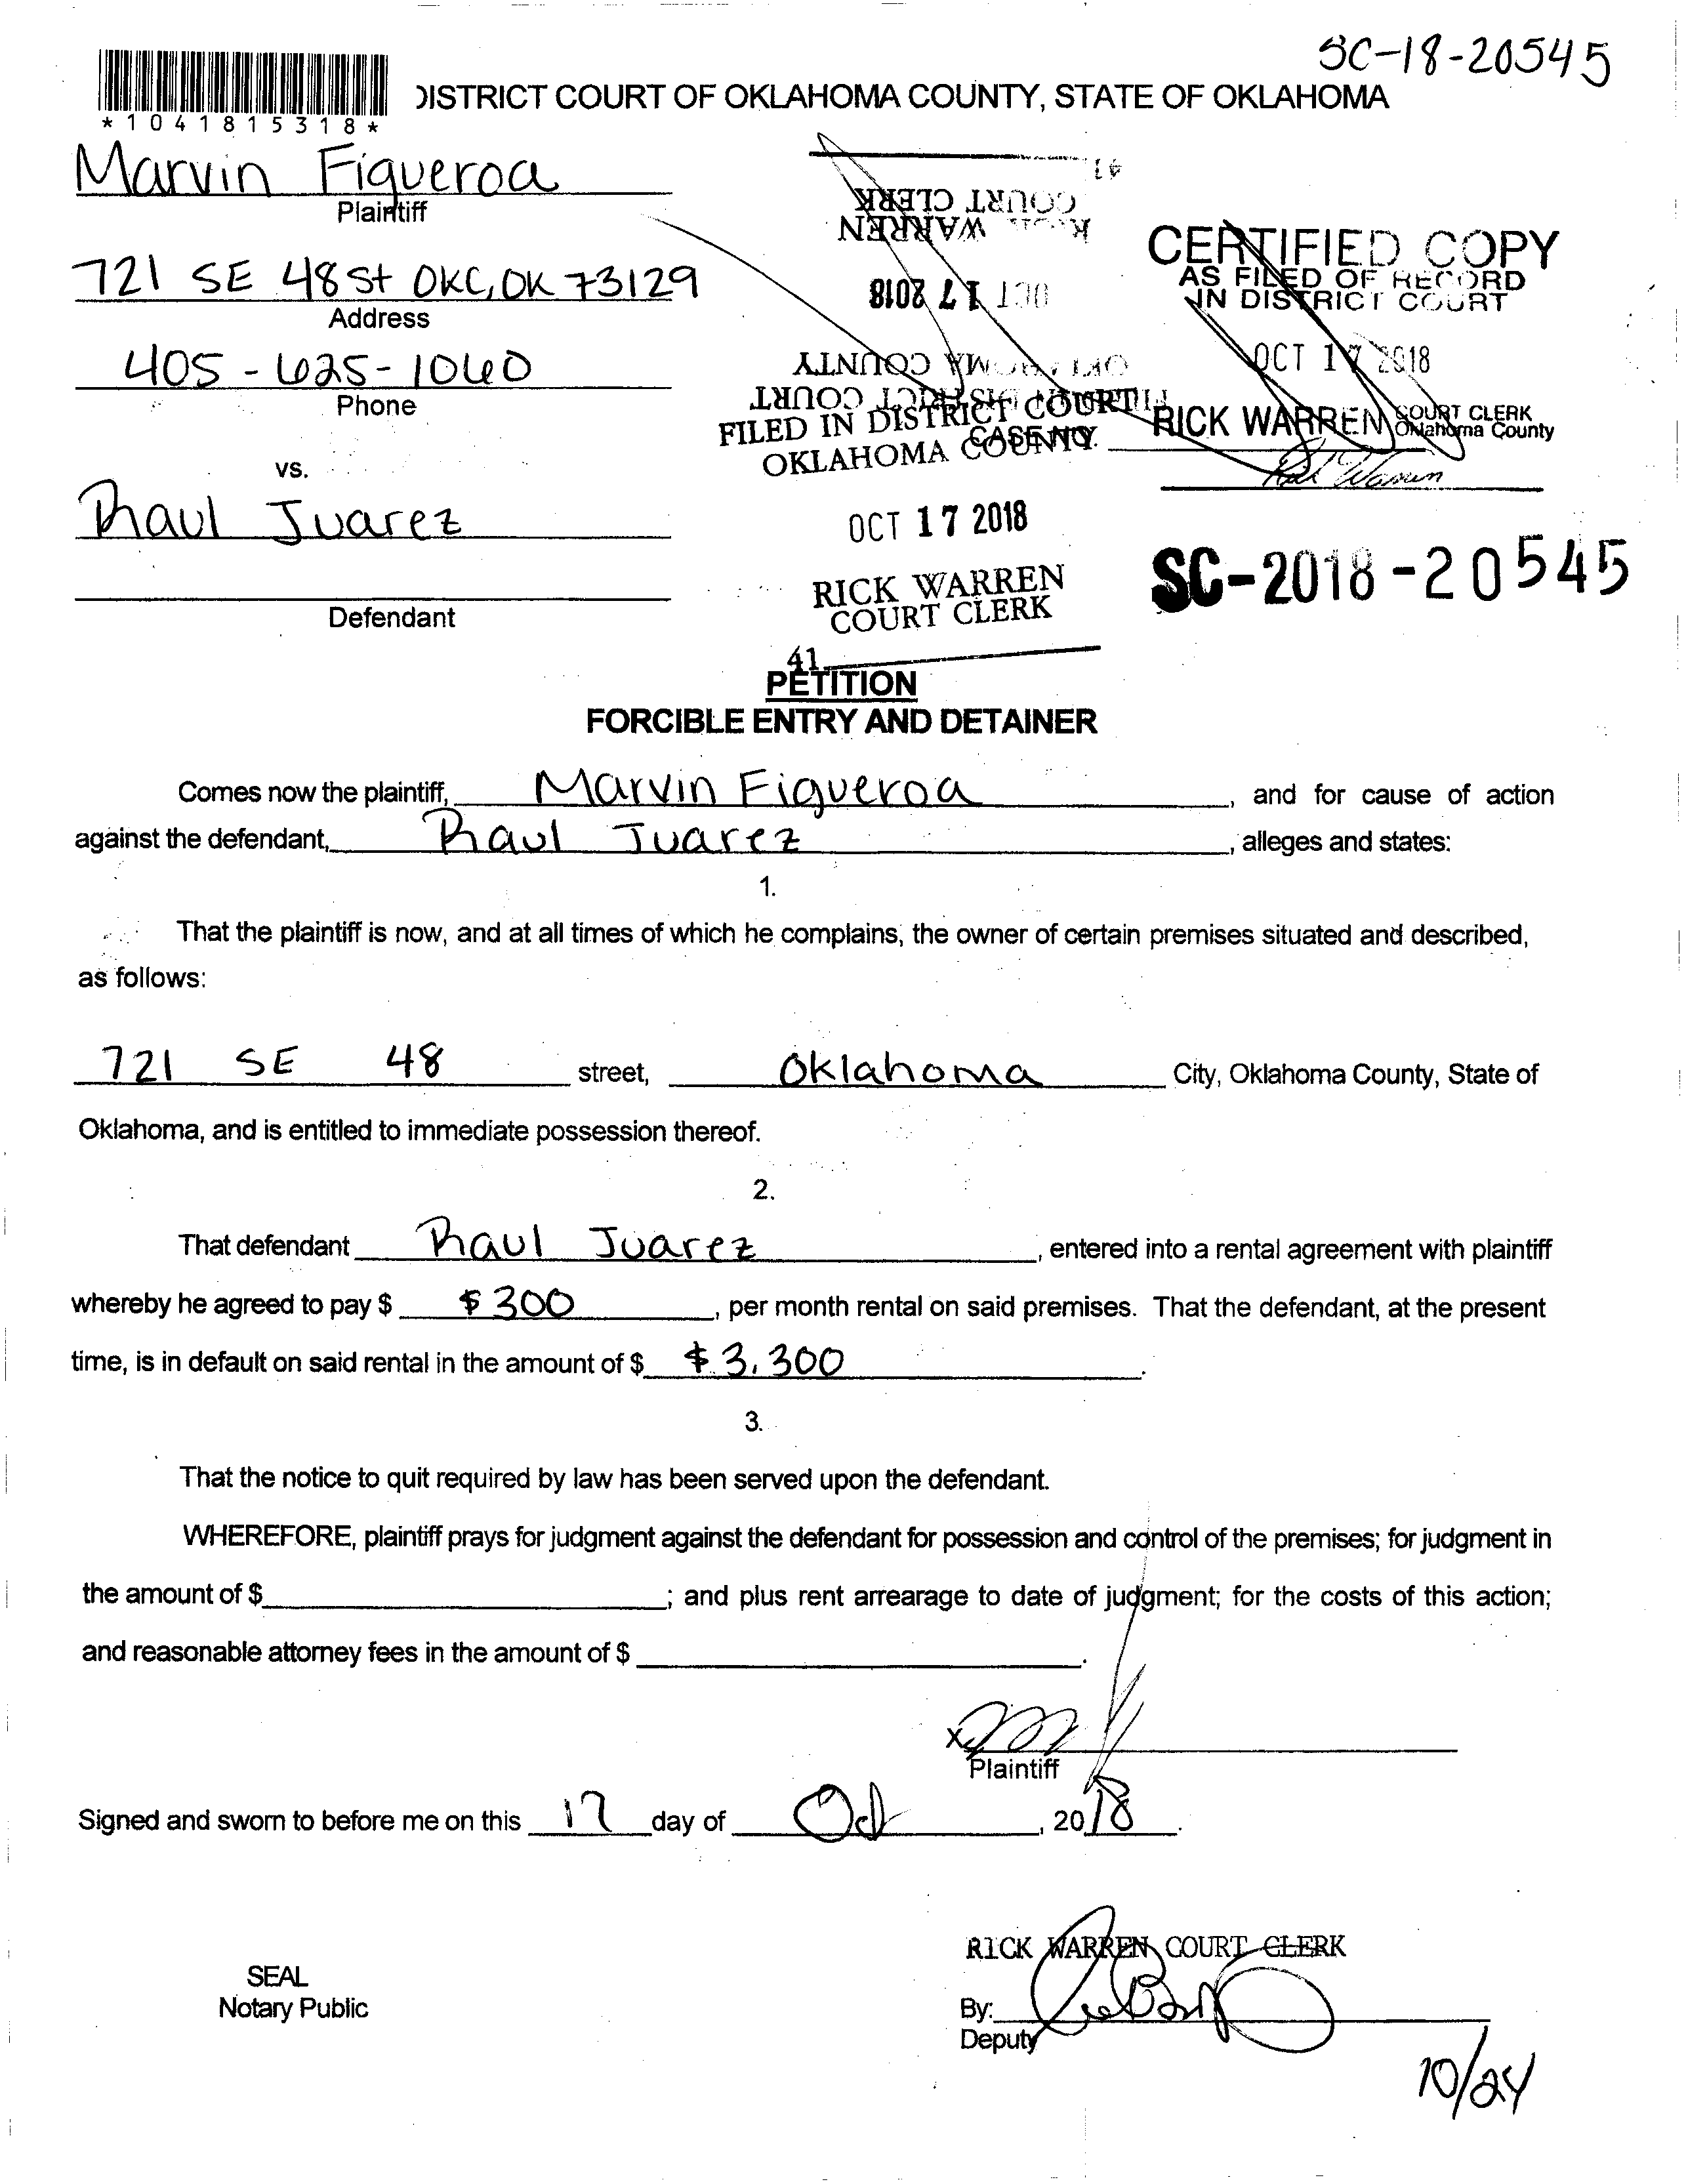 SC-18-20545
DISTRICT COURT OF OKLAHOMA COUNTY, STATE OF OKLAHOMA
*1041815318*
Marvin Figueroa
Plaintiff
721 SE 48 St OKC, OK 73129
Address
405-625-1060
Phone
vs.
Raul Juarez
Defendant
41
COURT CLERK
RICK WARREN
OCT 17 2018
OKLAHOMA COUNTY
FILED IN DISTRICT COURT
CERTIFIED COPY
AS FILED OF RECORD
IN DISTRICT COURT
OCT 17 2018
RICK WARREN COURT CLERK
Oklahoma County
Rick Warren
FILED IN DISTRICT COURT
OKLAHOMA COUNTY
CASE NO.
OCT 17 2018
RICK WARREN
COURT CLERK
41
SC-2018-20545
PETITION
FORCIBLE ENTRY AND DETAINER
Comes now the plaintiff, Marvin Figueroa, and for cause of action
against the defendant, Raul Juarez, alleges and states:
1.
That the plaintiff is now, and at all times of which he complains, the owner of certain premises situated and described,
as follows:
721 SE 48 street, Oklahoma City, Oklahoma County, State of
Oklahoma, and is entitled to immediate possession thereof.
2.
That defendant Raul Juarez, entered into a rental agreement with plaintiff
whereby he agreed to pay $ $300, per month rental on said premises. That the defendant, at the present
time, is in default on said rental in the amount of $ $3,300.
3.
That the notice to quit required by law has been served upon the defendant.
WHEREFORE, plaintiff prays for judgment against the defendant for possession and control of the premises; for judgment in
the amount of $ ; and plus rent arrearage to date of judgment; for the costs of this action;
and reasonable attorney fees in the amount of $ .
X
Plaintiff
Signed and sworn to before me on this 17 day of Oct, 2018.
RICK WARREN COURT CLERK
SEAL
Notary Public
By:
Deputy
10/24